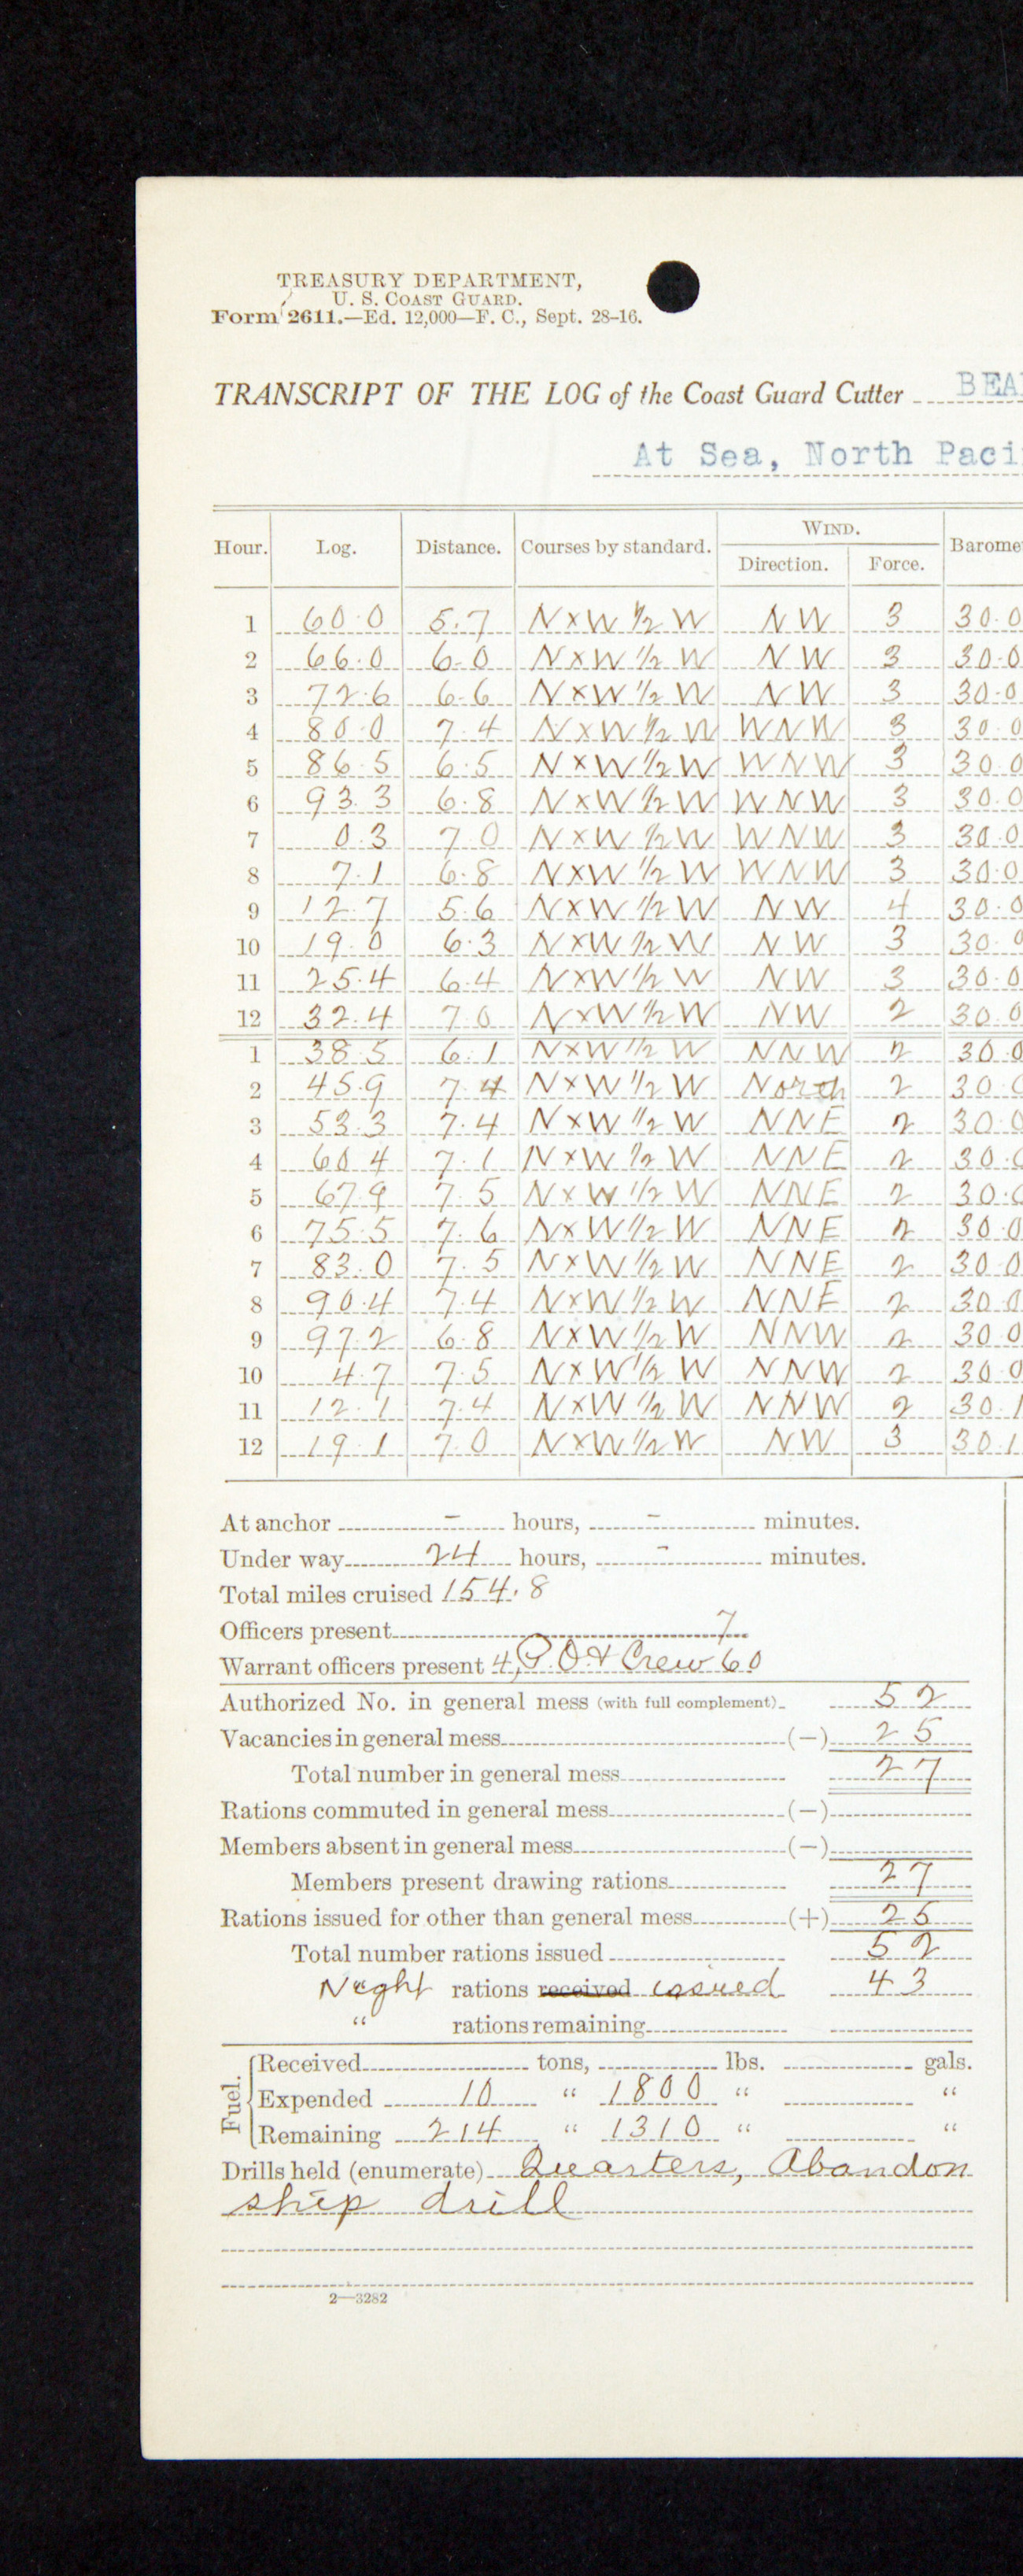 TREASURY DEPARTMENT,
U. S. COAST GUARD.
Form 2611.—Ed. 12,000—F. C., Sept. 28-16.
TRANSCRIPT OF THE LOG of the Coast Guard Cutter BEA
At Sea, North Paci
WIND.
Hour. Log. Distance. Courses by standard. Direction. Force. Barome
1 60.0 5.7 NxW ½ W NW 3 30.0
2 66.0 6.0 NxW ½ W NW 3 30.0
3 72.6 6.6 NxW ½ W NW 3 30.0
4 80.0 7.4 NxW ½ W WNW 3 30.0
5 86.5 6.5 NxW ½ W WNW 3 30.0
6 93.3 6.8 NxW ½ W WNW 3 30.0
7 0.3 7.0 NxW ½ W WNW 3 30.0
8 7.1 6.8 NxW ½ W WNW 3 30.0
9 12.7 5.6 NxW ½ W NW 4 30.0
10 19.0 6.3 NxW ½ W NW 3 30.0
11 25.4 6.4 NxW ½ W NW 3 30.0
12 32.4 7.0 NxW ½ W NW 2 30.0
1 38.5 6.1 NxW ½ W NNW 2 30.0
2 45.9 7.4 NxW ½ W North 2 30.0
3 53.3 7.4 NxW ½ W NNE 2 30.0
4 60.4 7.1 NxW ½ W NNE 2 30.0
5 67.9 7.5 NxW ½ W NNE 2 30.0
6 75.5 7.6 NxW ½ W NNE 2 30.0
7 83.0 7.5 NxW ½ W NNE 2 30.0
8 90.4 7.4 NxW ½ W NNE 2 30.0
9 97.2 6.8 NxW ½ W NNW 2 30.0
10 4.7 7.5 NxW ½ W NNW 2 30.0
11 12.1 7.4 NxW ½ W NNW 2 30.1
12 19.1 7.0 NxW ½ W NW 3 30.1
At anchor - hours, - minutes.
Under way 24 hours, - minutes.
Total miles cruised 154.8
Officers present 7
Warrant officers present 4, P.O. & Crew 60
Authorized No. in general mess (with full complement) 52
Vacancies in general mess (—) 25
Total number in general mess 27
Rations commuted in general mess (—)
Members absent in general mess (—)
Members present drawing rations 27
Rations issued for other than general mess (+) 25
Total number rations issued 52
Night rations received issued 43
" rations remaining
Fuel.
Received tons, lbs. gals.
Expended 10 " 1800 " "
Remaining 214 " 1310 " "
Drills held (enumerate) Quarters, Abandon
ship drill
2—3282